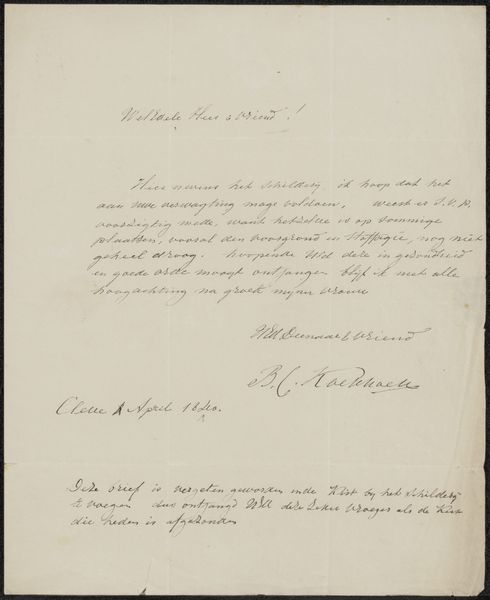 WelEdele Heer & Vriend!
Hier nevens het Schilderij, ik hoop dat het
aan uwe verwagting mage voldoen, weest er S.V.P.
voorzigtig mede, want hetzelve is op sommige
plaatsen, vooral den voorgrond en Stoffagie, nog niet
geheel droog. hoopende UEd deze in gezondheid
en goede orde moogt ontfangen blijf ik met alle
hoogachting na groete mijner vrouw
UEd Dienaar & Vriend
B. C. Koekkoek
Cleve April 1840.
Deze brief is vergeten geworden in de Kist bij het Schilderij
te voegen dus ontfangd UEd deze zeker vroeger als de Kist
die heden is afgezonden